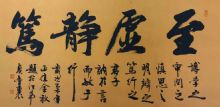 至虛靜篤
博學之
審問之
慎思之
明辨之
篤行之
君子
訥於言
而敏於
行